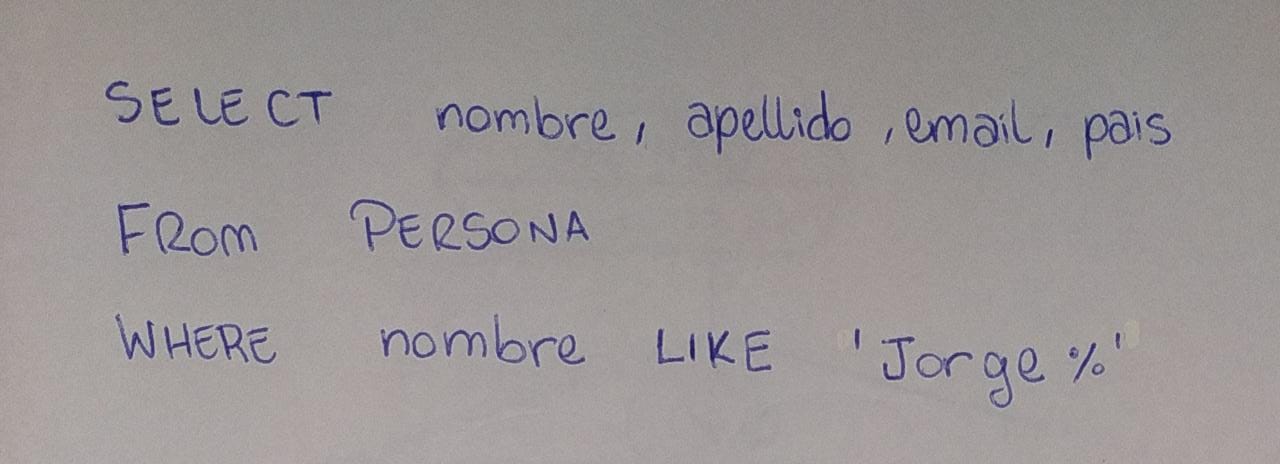 SELECT nombre, apellido, email, pais
FROM PERSONA
WHERE nombre LIKE 'Jorge%'